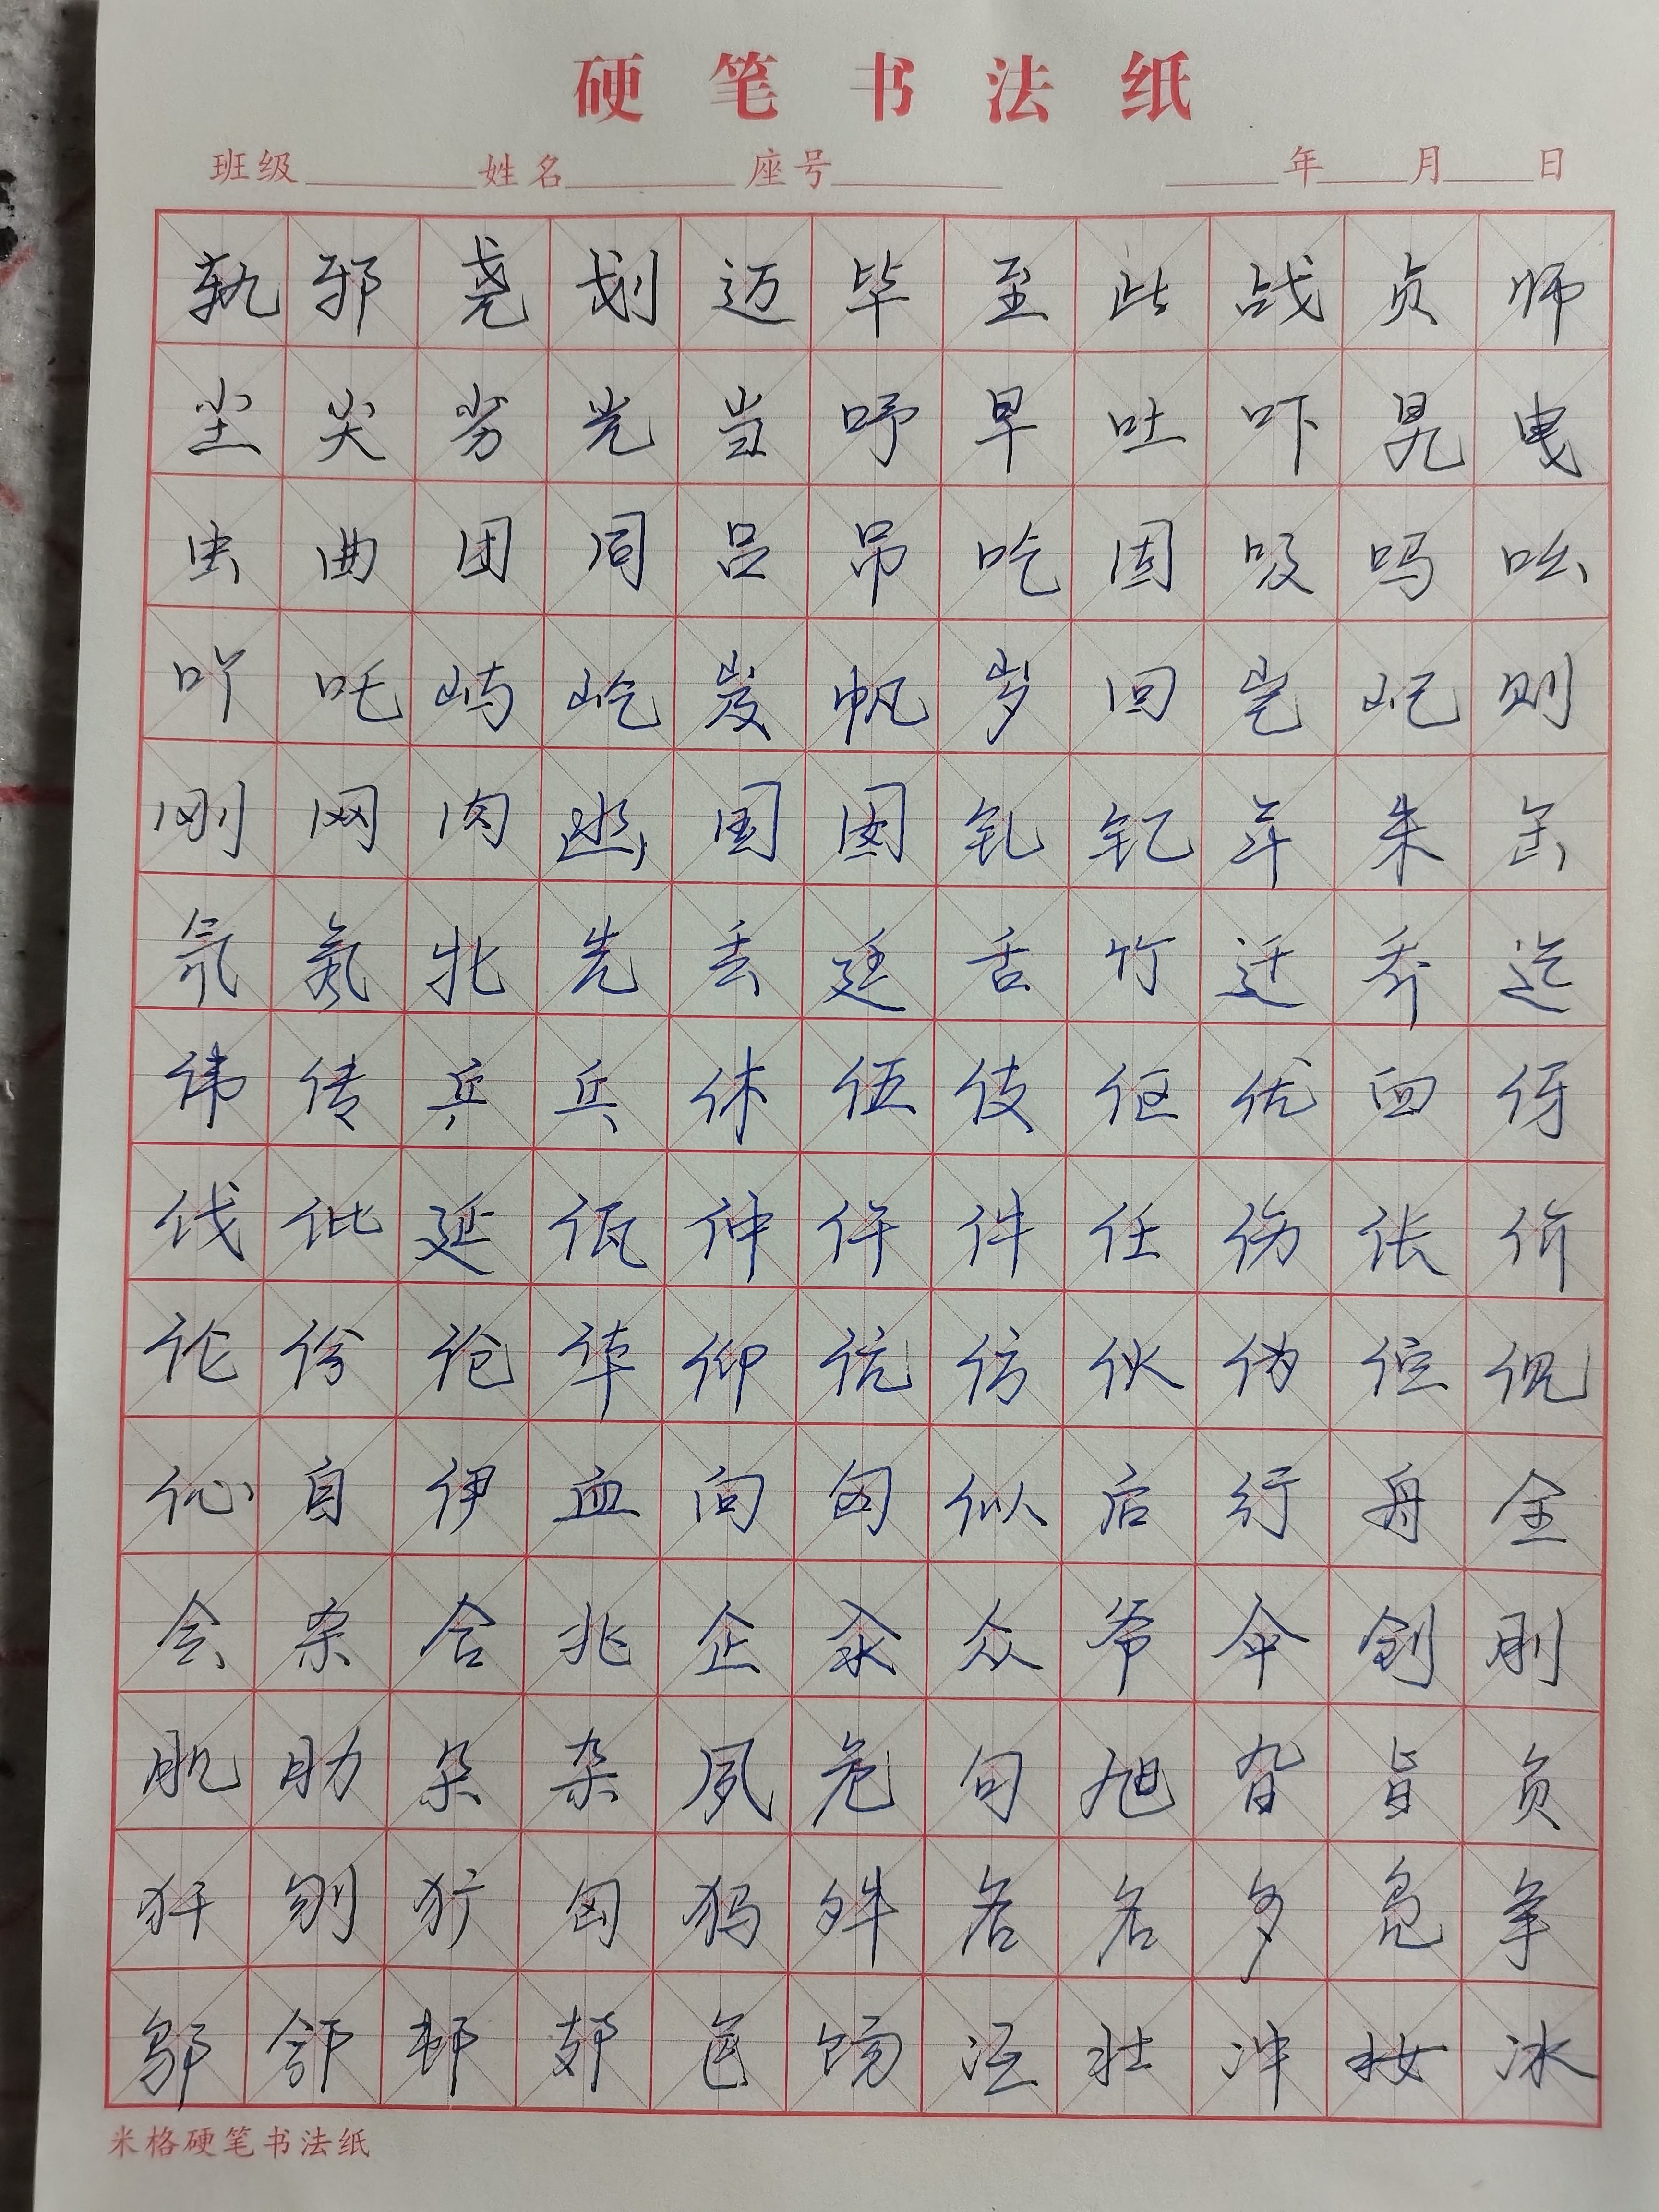 硬笔书法纸
班级 姓名 座号 年 月 日
轨邪尧划迈毕至此战贞师
尘尖劣光当吁早吐吓晃曳
虫曲团同吕吊吃因吸吗吆
吖吒屿屹岌帆岁回岂屺则
刚网肉凼国囡钆钇年朱缶
氘氖牝先丢廷舌竹迁乔迄
伟传乒乓休伍伎伛优臼伢
伐仳延佤仲仵件任伤伥价
伦份伧华仰伉仿伙伪伫伣
伈自伊血向囟似后行舟全
会杀合兆企汆众爷伞创刖
肌肋朵杂夙危旬旭旮旨负
犴刎犷匈犸舛名多凫争
邬邠邨郊色饧冱壮冲妆冰
米格硬笔书法纸